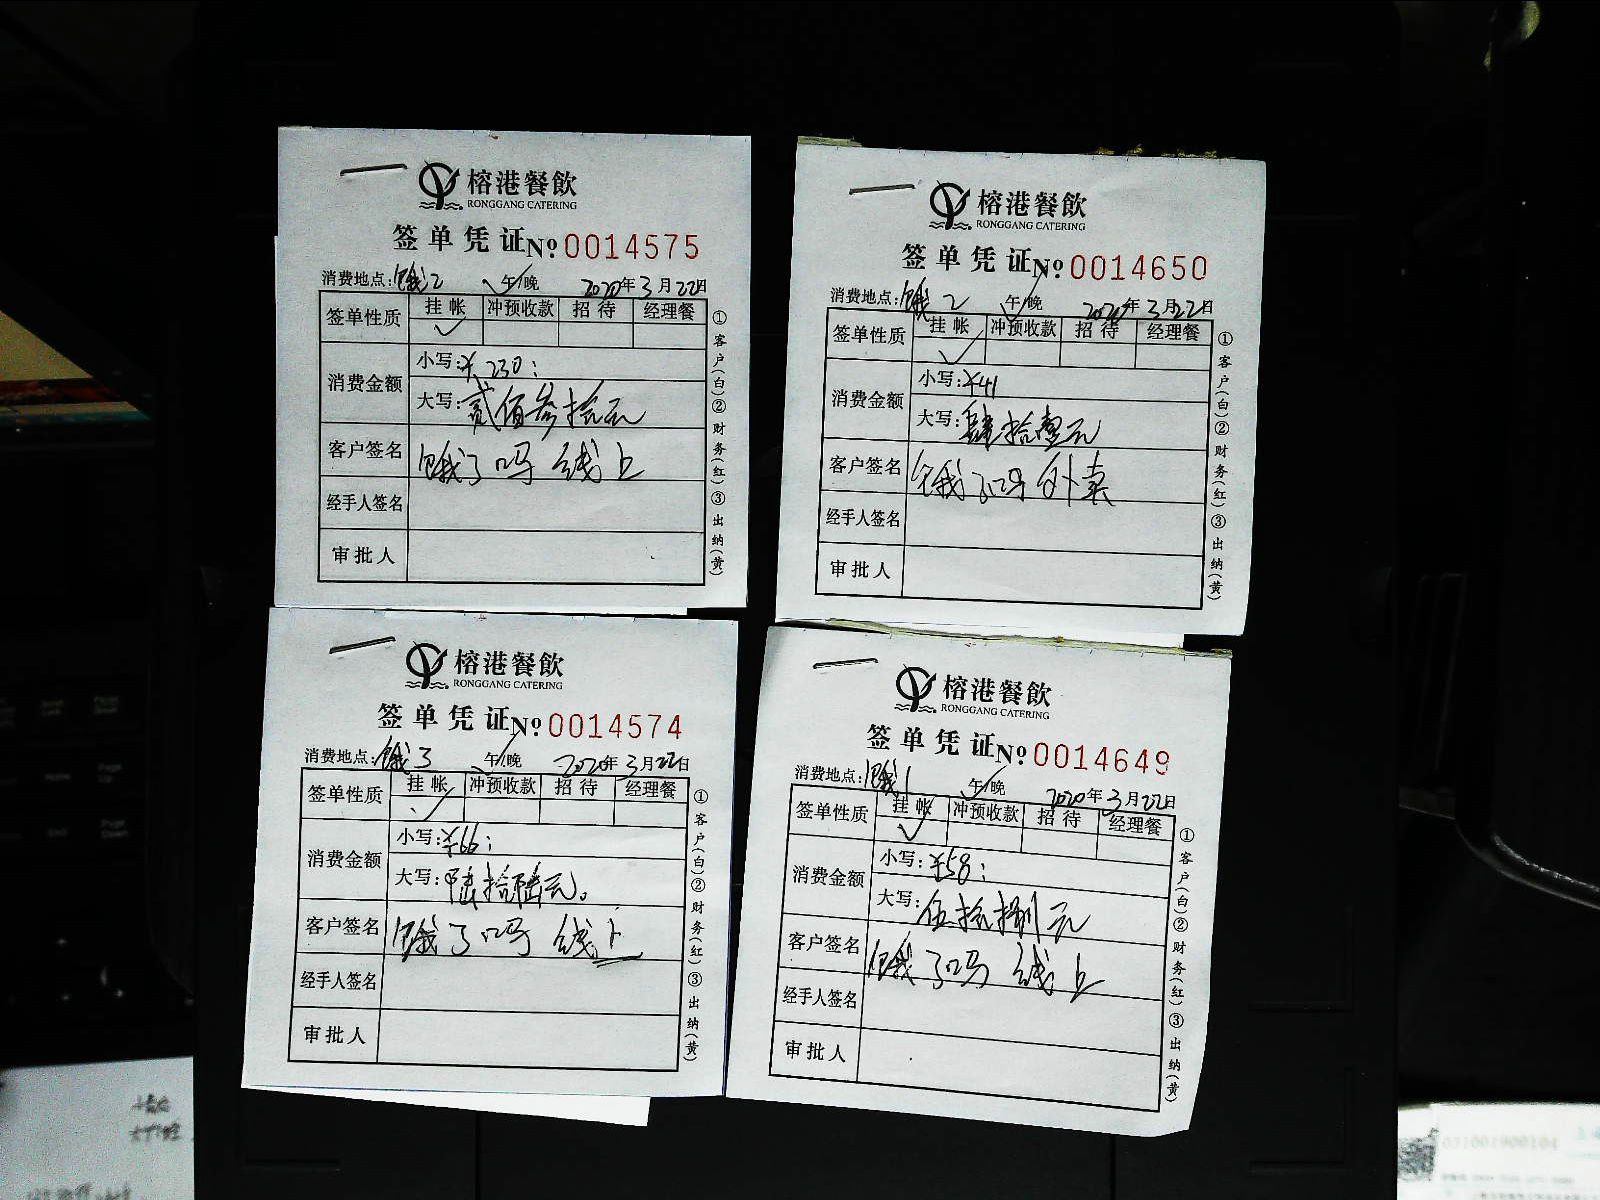 榕港餐飲
RONGGANG CATERING
签单凭证 No 0014575
消费地点:饿2 午/晚 2020年3月22日
签单性质 挂帐 冲预收款 招待 经理餐
✓
消费金额 小写:¥230:
大写:贰佰叁拾元
客户签名 饿了吗 线上
经手人签名
审批人
①客户(白)②财务(红)③出纳(黄)
榕港餐飲
RONGGANG CATERING
签单凭证 No 0014650
消费地点:饿2 午/晚 2020年3月22日
签单性质 挂帐 冲预收款 招待 经理餐
✓
消费金额 小写:¥41
大写:肆拾壹元
客户签名 饿了吗外卖
经手人签名
审批人
①客户(白)②财务(红)③出纳(黄)
榕港餐飲
RONGGANG CATERING
签单凭证 No 0014574
消费地点:饿3 午/晚 2020年3月22日
签单性质 挂帐 冲预收款 招待 经理餐
✓
消费金额 小写:¥66:
大写:陆拾陆元。
客户签名 饿了吗 线上
经手人签名
审批人
①客户(白)②财务(红)③出纳(黄)
榕港餐飲
RONGGANG CATERING
签单凭证 No 0014649
消费地点:饿1 午/晚 2020年3月22日
签单性质 挂帐 冲预收款 招待 经理餐
✓
消费金额 小写:¥58:
大写:伍拾捌元
客户签名 饿了吗 线上
经手人签名
审批人
①客户(白)②财务(红)③出纳(黄)